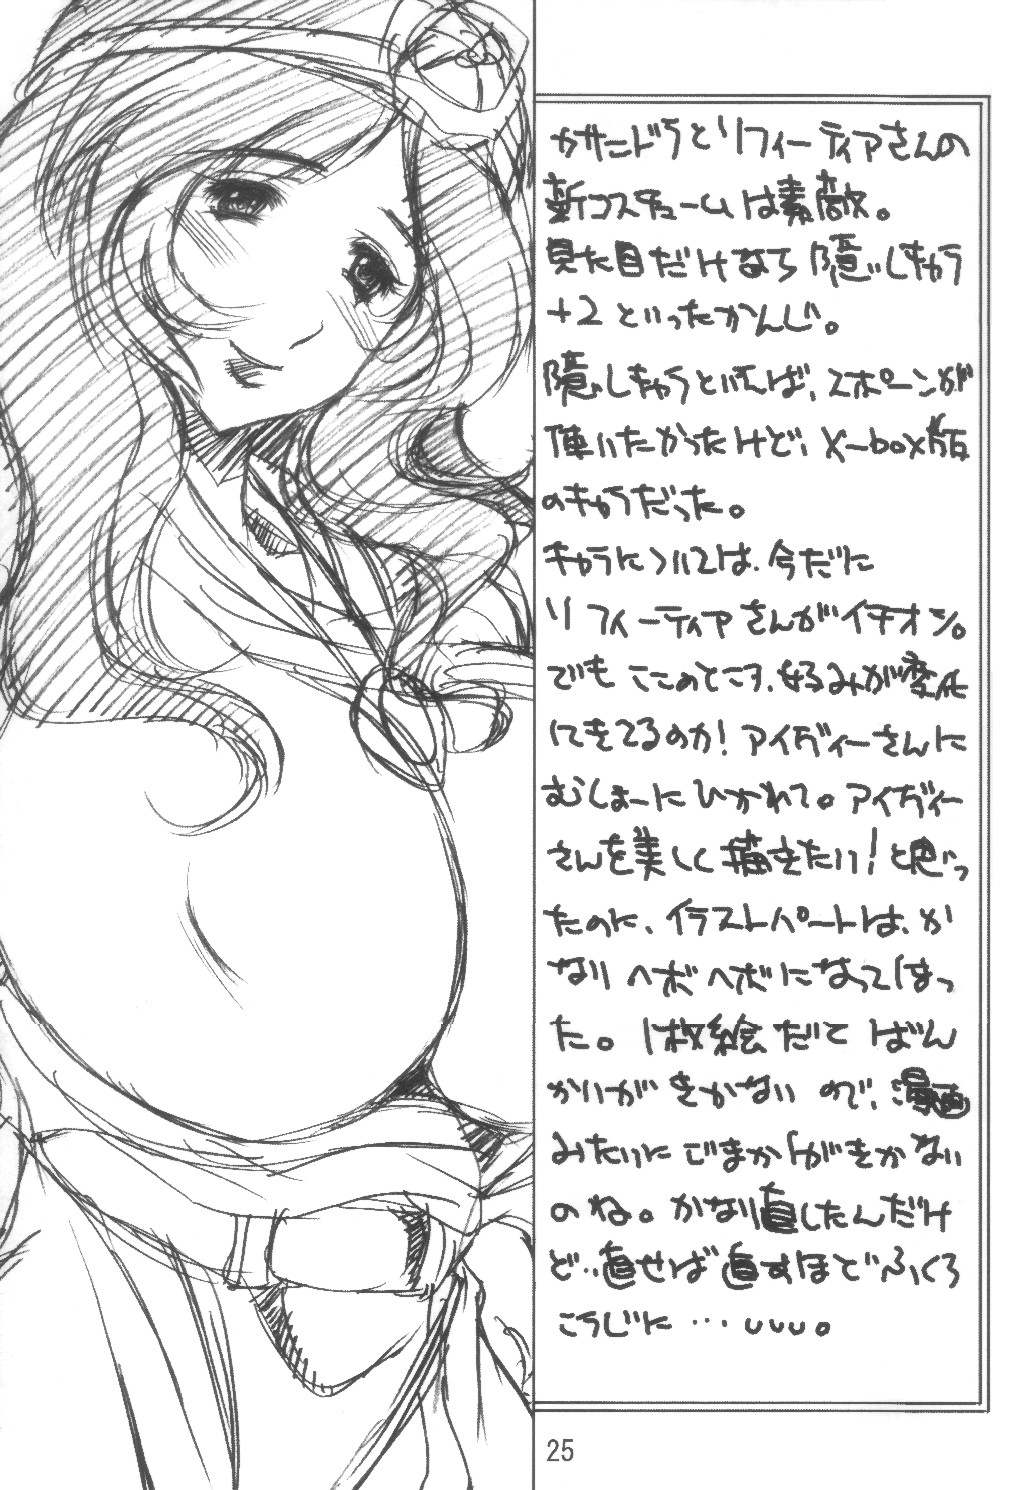 カサンドラとソフィーティアさんの
新コスチュームは素敵。
見た目だけなら隠しキャラ
+2といったかんじ。
隠しキャラといえば、スポーンが
使いたかったけど、X-box版
のキャラだった。
キャラについては、今だに
ソフィーティアさんがイチオシ。
でもここのところ、好みが変化
してきてるのか!アイヴィーさんに
むしょーにひかれて。アイヴィー
さんを美しく描きたい!と思っ
たのに、イラストパートは、か
なりヘボヘボになってしまっ
た。1枚絵だてばん
かいがきかないので、漫画
みたいにごまかしがきかない
のね。かなり直したんだけ
ど‥直せば直すほどふくろ
こうじに…UUU。
25